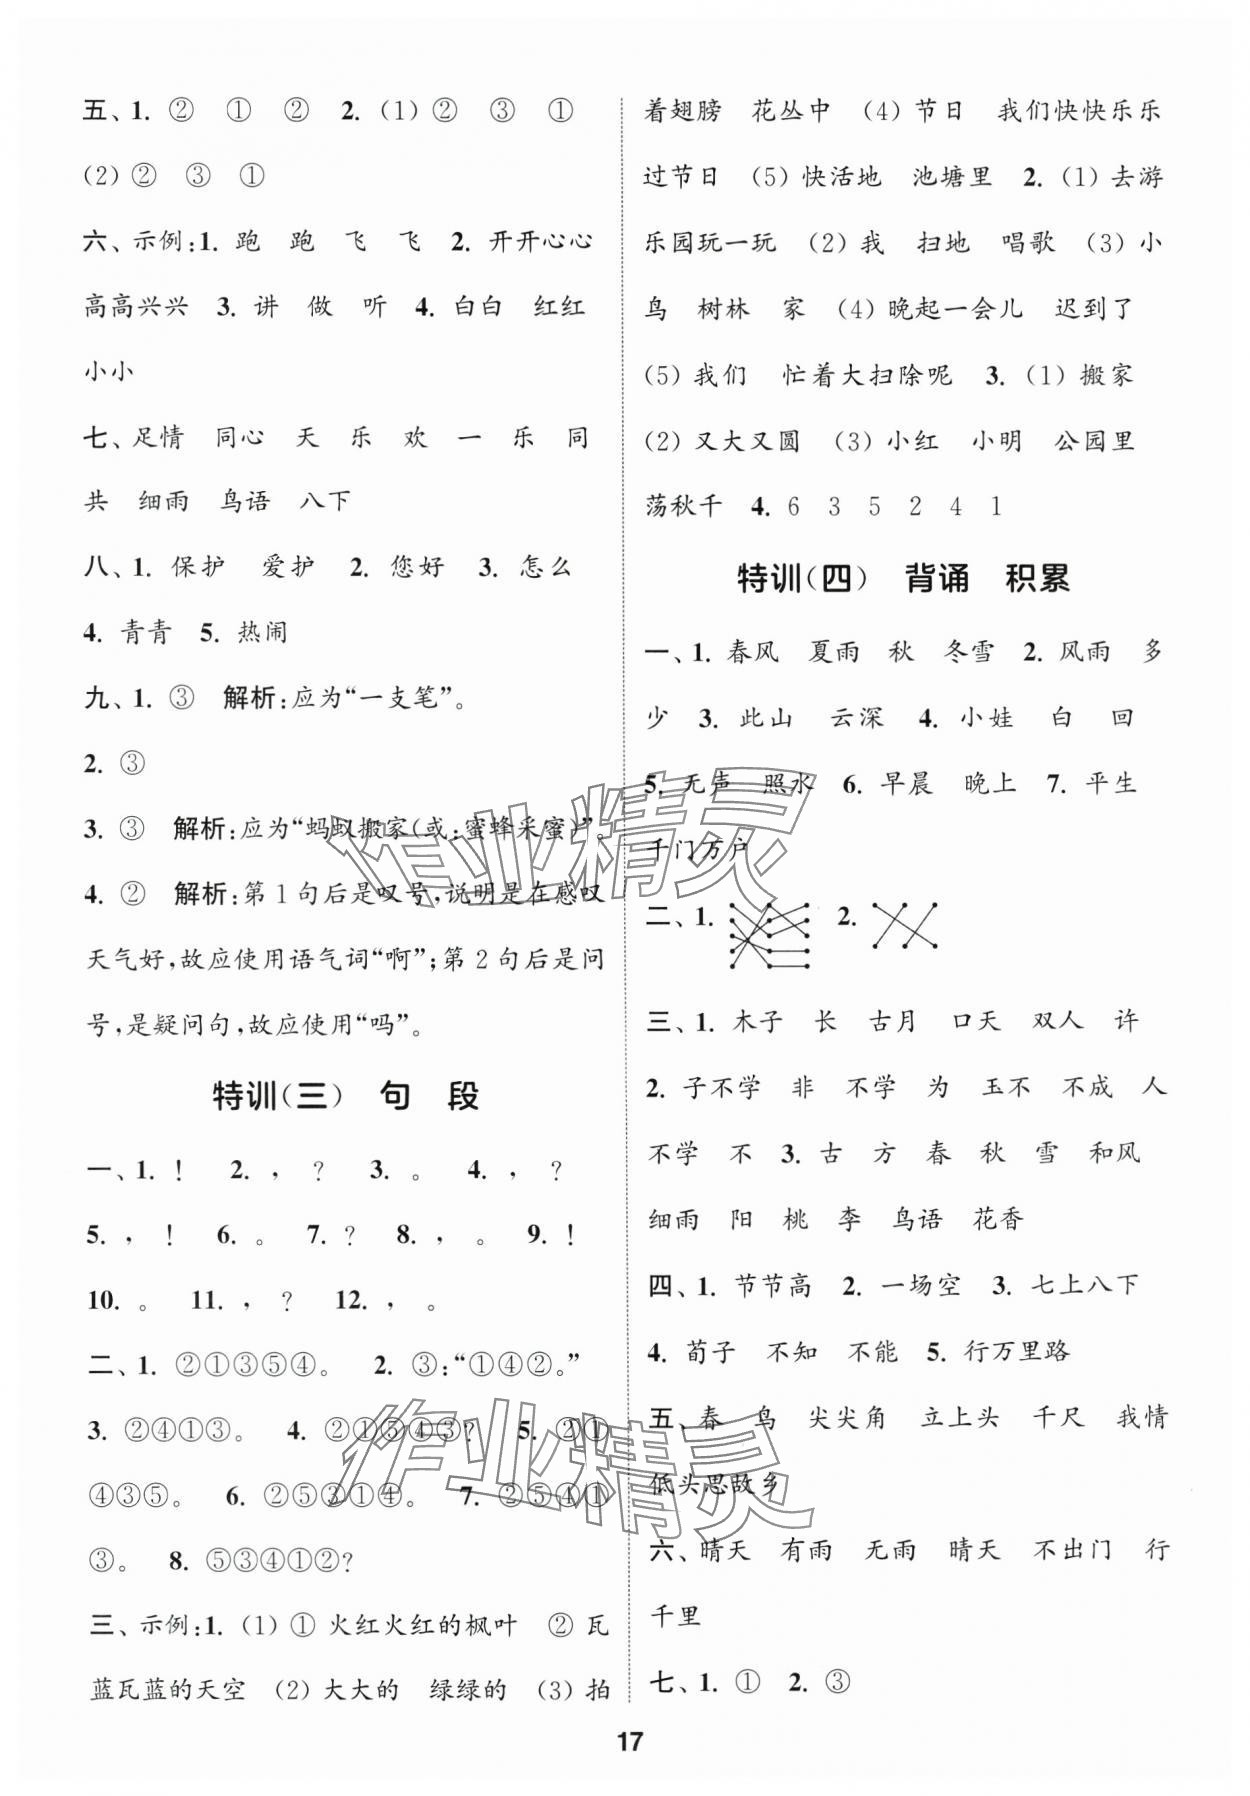 五、1. ② ① ② 2. (1) ② ③ ①
(2) ② ③ ①
六、示例:1. 跑 跑 飞 飞 2. 开开心心
高高兴兴 3. 讲 做 听 4. 白白 红红
小小
七、足情 同心 天 乐 欢 一 乐 同
共 细雨 鸟语 八下
八、1. 保护 爱护 2. 您好 3. 怎么
4. 青青 5. 热闹
九、1. ③ 解析:应为“一支笔”。
2. ③
3. ③ 解析:应为“蚂蚁搬家(或:蜜蜂采蜜)”。
4. ② 解析:第1句后是叹号,说明是在感叹
天气好,故应使用语气词“啊”;第2句后是问
号,是疑问句,故应使用“吗”。
特训(三) 句 段
一、1. ! 2. , ? 3. 。 4. , ?
5. , ! 6. 。 7. ? 8. , 。 9. !
10. 。 11. , ? 12. , 。
二、1. ②①③⑤④。 2. ③:“①④②。”
3. ②④①③。 4. ②①⑤④③? 5. ②①
④③⑤。 6. ②⑤③①④。 7. ②⑤④①
③。 8. ⑤③④①②?
三、示例:1. (1) ① 火红火红的枫叶 ② 瓦
蓝瓦蓝的天空 (2) 大大的 绿绿的 (3) 拍
着翅膀 花丛中 (4) 节日 我们快快乐乐
过节日 (5) 快活地 池塘里 2. (1) 去游
乐园玩一玩 (2) 我 扫地 唱歌 (3) 小
鸟 树林 家 (4) 晚起一会儿 迟到了
(5) 我们 忙着大扫除呢 3. (1) 搬家
(2) 又大又圆 (3) 小红 小明 公园里
荡秋千 4. 6 3 5 2 4 1
特训(四) 背诵 积累
一、1. 春风 夏雨 秋 冬雪 2. 风雨 多
少 3. 此山 云深 4. 小娃 白 回
5. 无声 照水 6. 早晨 晚上 7. 平生
千门万户
二、1. 2.
三、1. 木子 长 古月 口天 双人 许
2. 子不学 非 不学 为 玉不 不成 人
不学 不 3. 古 方 春 秋 雪 和风
细雨 阳 桃 李 鸟语 花香
四、1. 节节高 2. 一场空 3. 七上八下
4. 荀子 不知 不能 5. 行万里路
五、春 鸟 尖尖角 立上头 千尺 我情
低头思故乡
六、晴天 有雨 无雨 晴天 不出门 行
千里
七、1. ① 2. ③
17
作业精灵
作业精灵